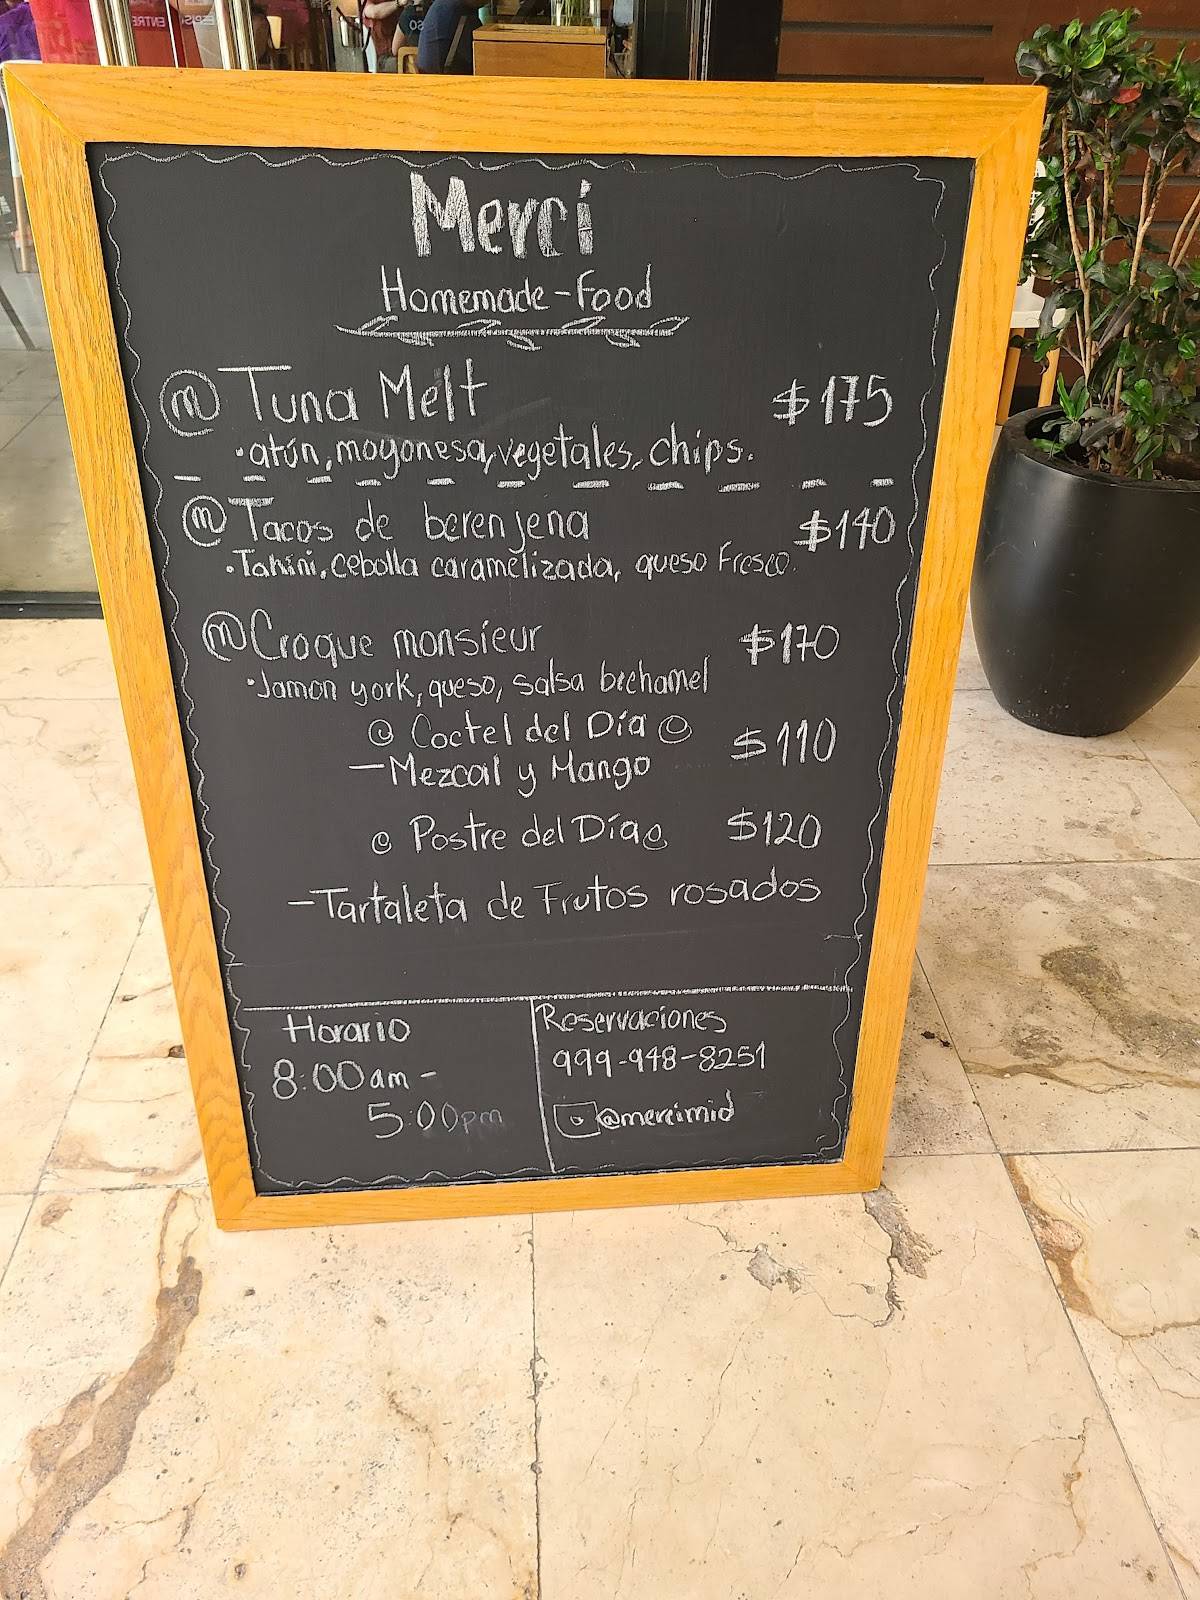 Merci
Homemade-Food
m Tuna Melt $175
·atún, mayonesa, vegetales, chips.
m Tacos de berenjena $140
·Tahini, cebolla caramelizada, queso Fresco.
m Croque monsieur $170
·Jamon york, queso, salsa bechamel
Coctel del Día $110
-Mezcal y Mango
Postre del Día $120
-Tartaleta de Frutos rosados
Horario
8:00am-
5:00pm
Reservaciones
999-948-8251
@mercimid